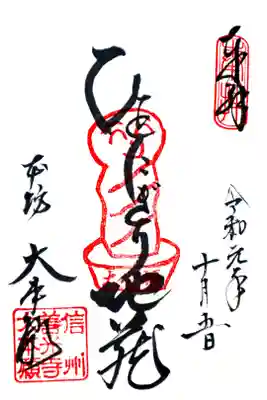 奉拝
令和元年
十月五日
ひとにぎり地蔵
本坊
大本願
信州
善光寺
大本願